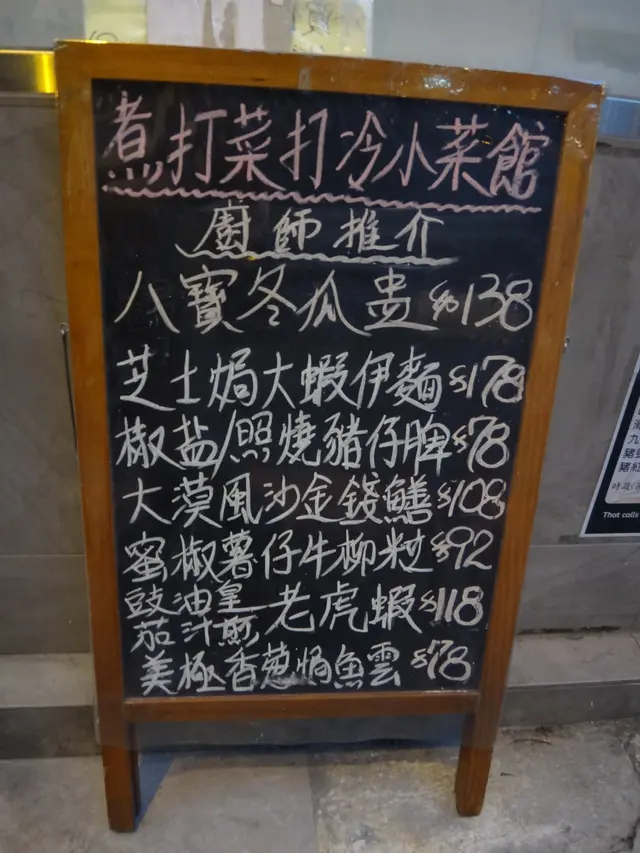 煮打菜打冷小菜館
廚師推介
八寶冬瓜盅 $138
芝士焗大蝦伊麵 $178
椒盐/照燒豬仔脾 $78
大漠風沙金錢鱔 $108
蜜椒薯仔牛柳粒 $92
豉油皇
茄汁煎 老虎蝦 $118
美極香葱焗魚雲 $78
That calls